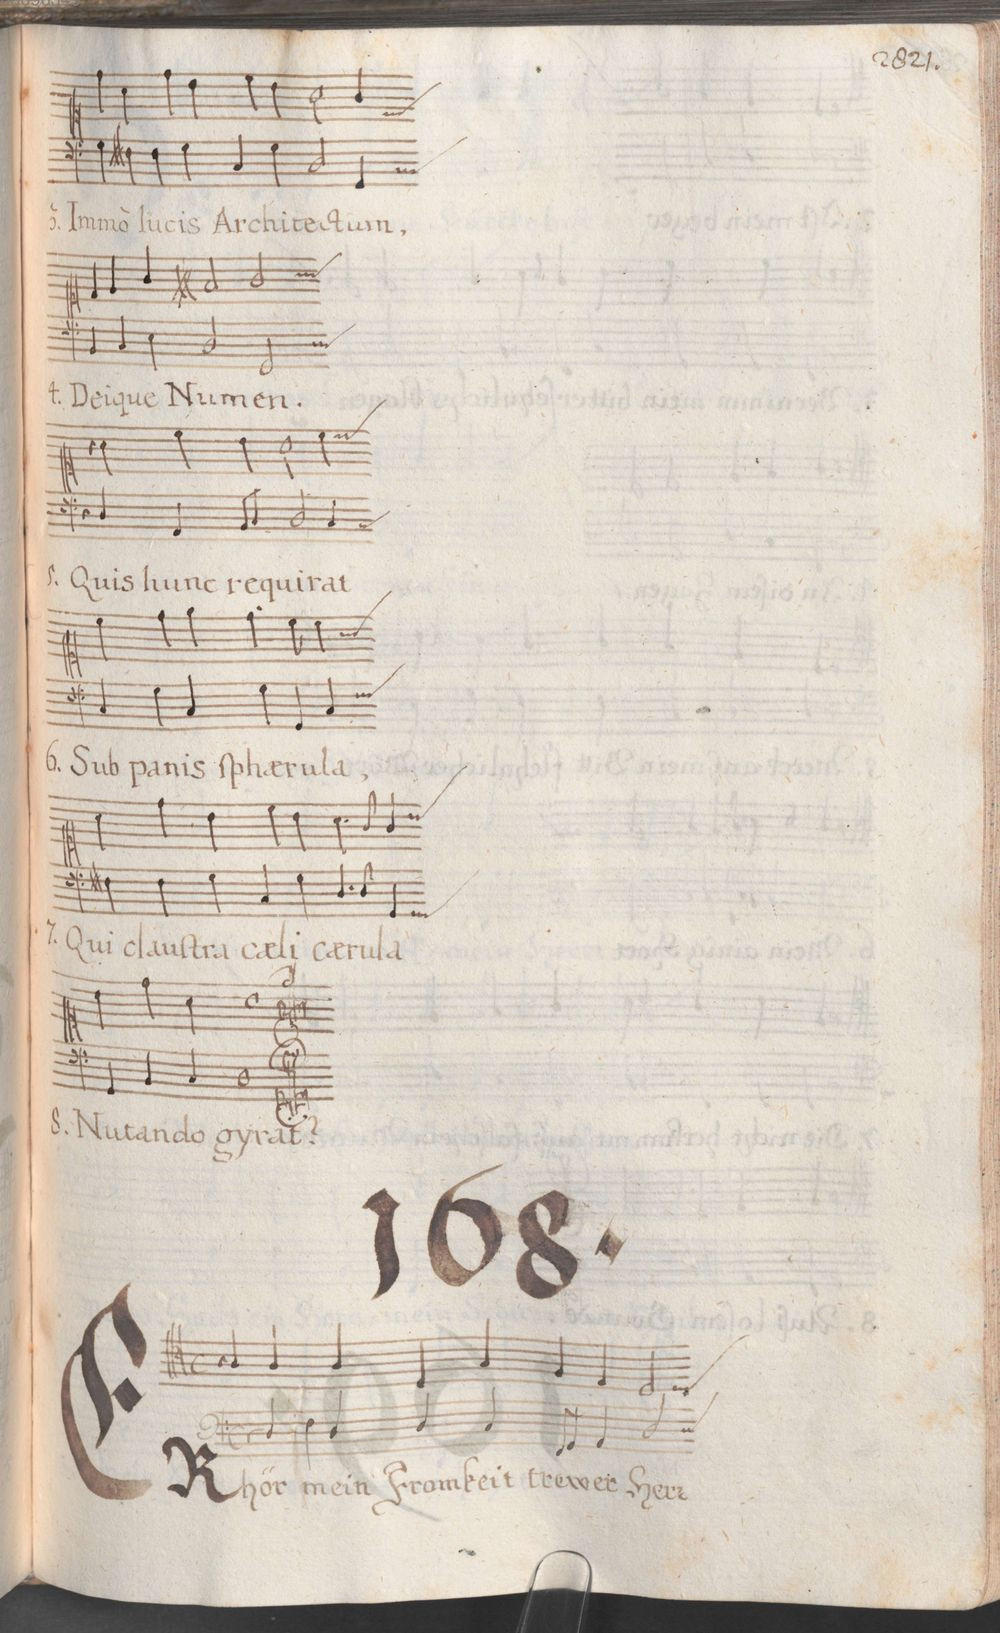 2821.
3. Immò lucis Architectum,
4. Deique Numen.
5. Quis hunc requirat
6. Sub panis sphærula,
7. Qui claustra cæli cærula
8. Nutando gyrat?
168.
ERhör mein Fromkeit trewer Herr